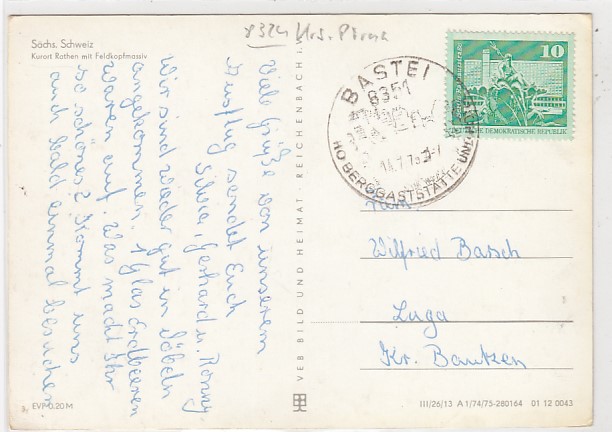 8324 Krs. Pirna
Sächs. Schweiz
Kurort Rathen mit Feldkopfmassiv
Viele Grüße von unserem
Ausflug sendet Euch
Silvia, Gerhard u. Ronny.
Wir sind wieder gut in Döbeln
angekommen. 1 Glas Erdbeeren
waren auf. Was macht Ihr
so schönes? Kommt uns
auch bald einmal besuchen.
EVP 0.20 M
VEB BILD UND HEIMAT, REICHENBACH I. V.
BASTEI
8351
HO BERGGASTSTÄTTE UND HOTEL
10
DEUTSCHE DEMOKRATISCHE REPUBLIK
Fam.
Wilfried Basch
Luga
Kr. Bautzen
III/26/13 A 1/74/75-280164 01 12 0043